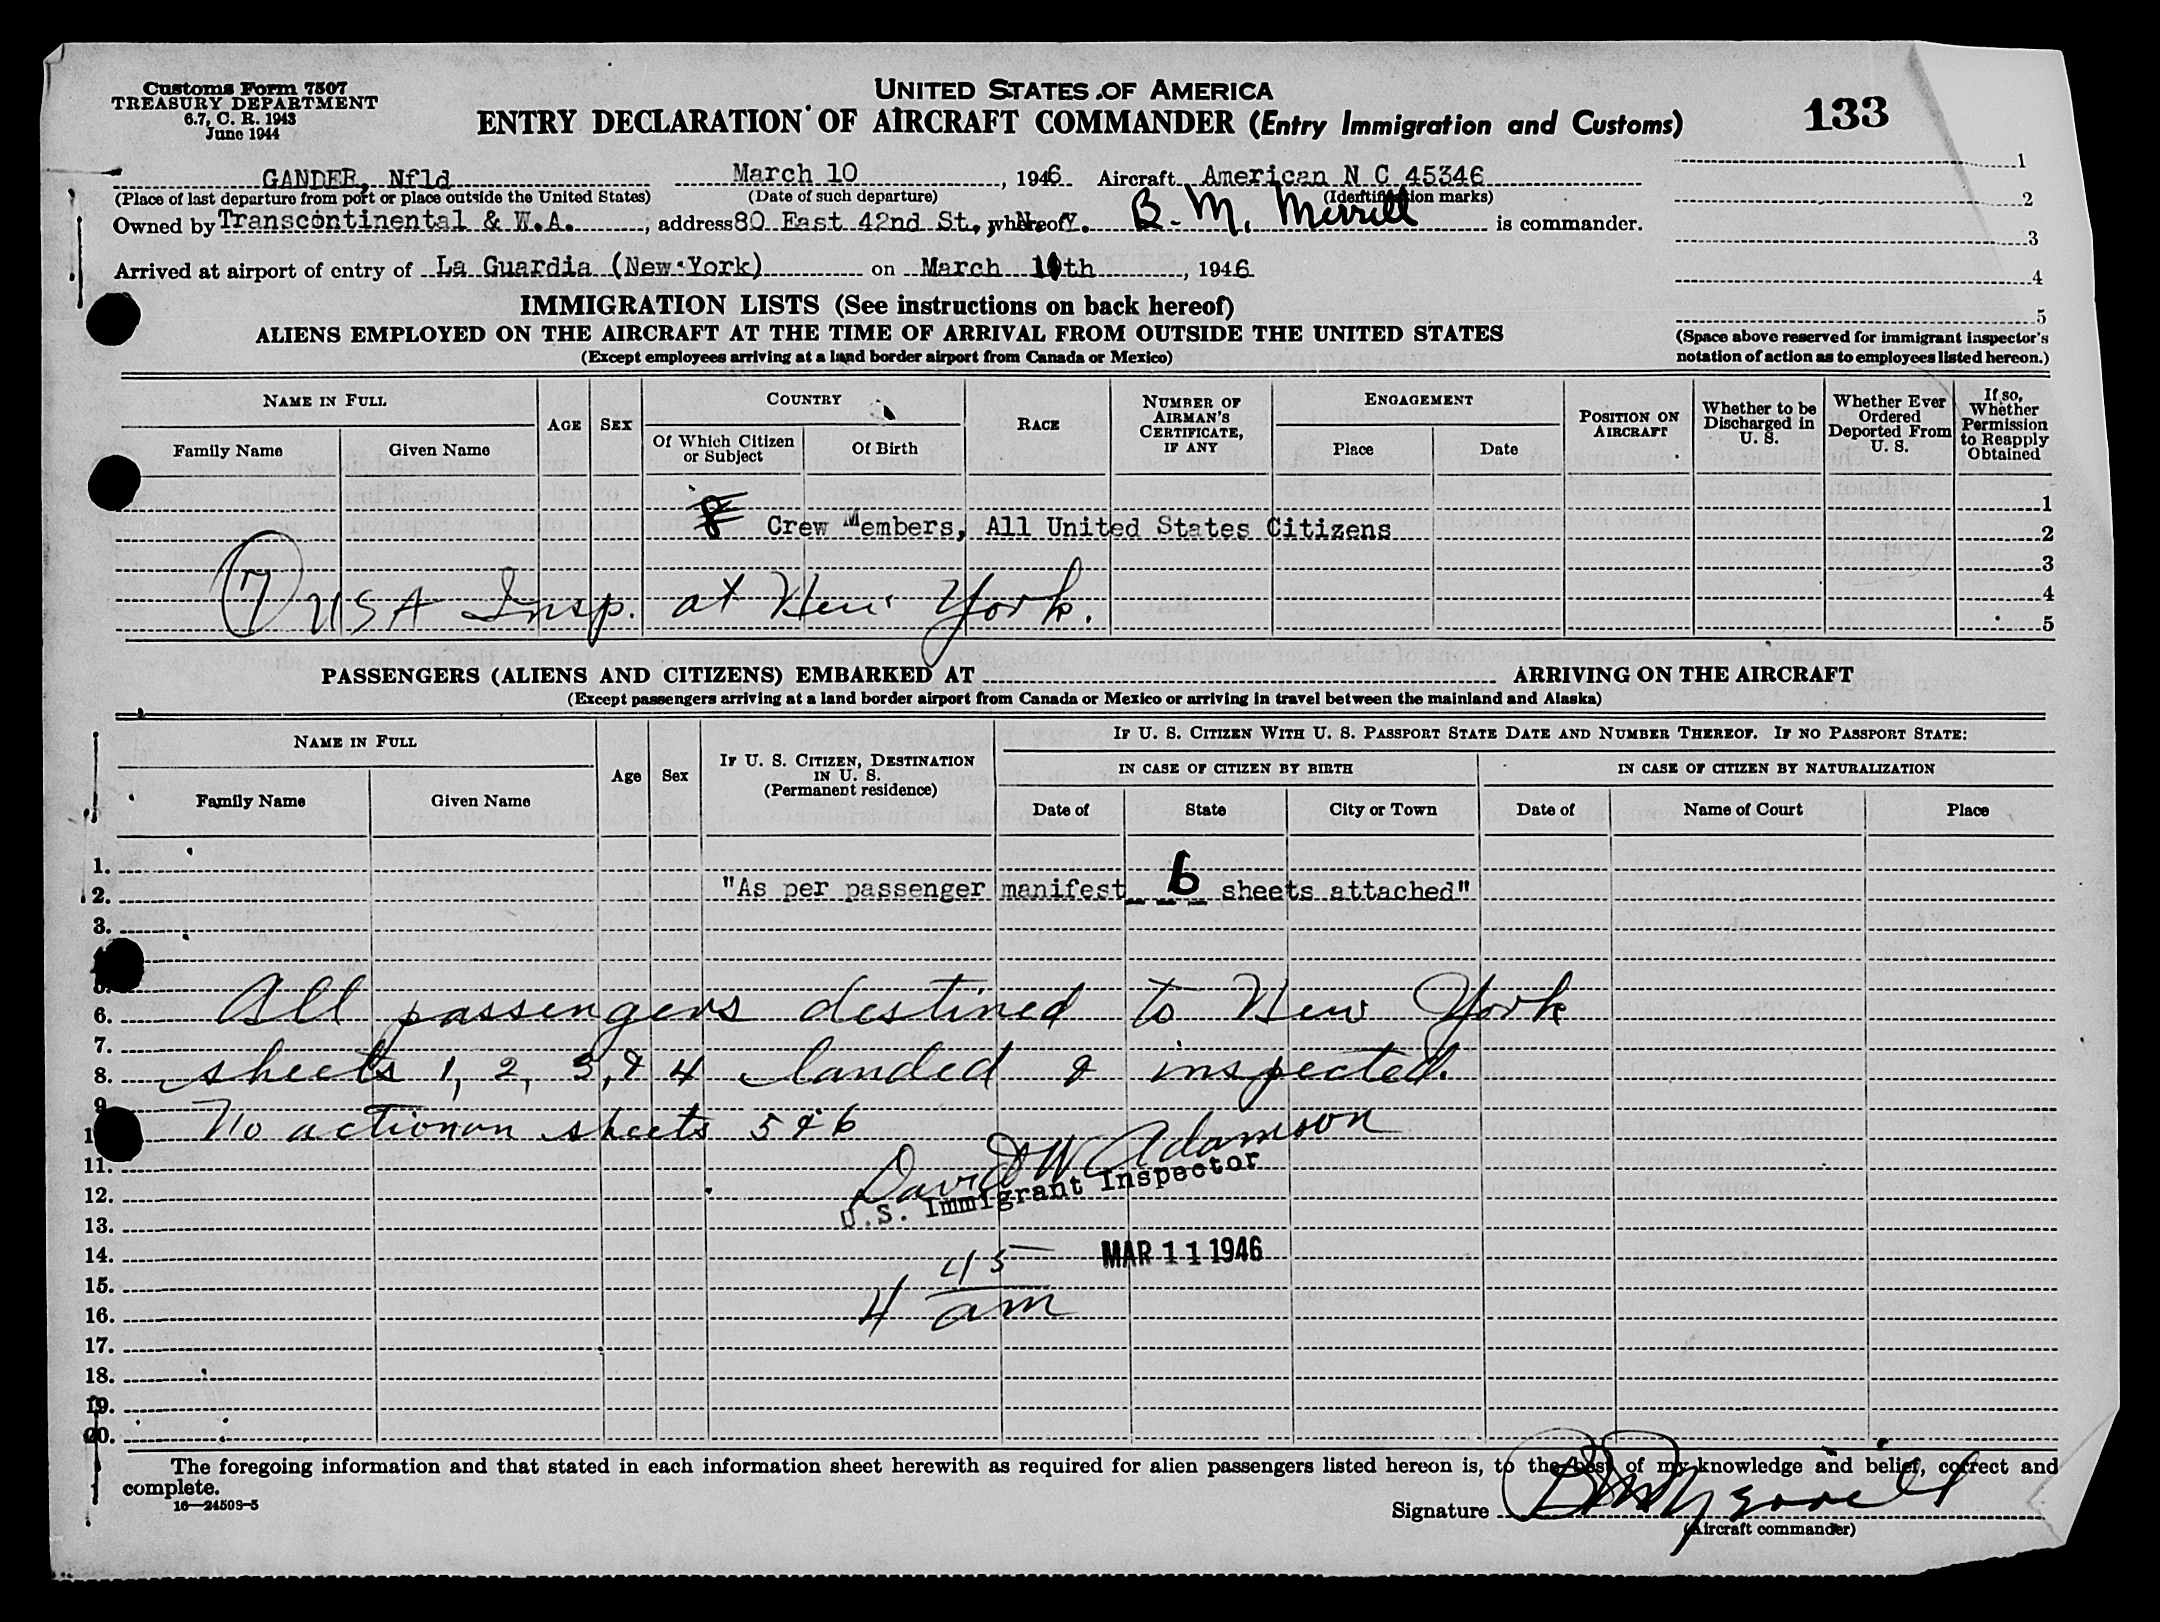 Customs Form 7507
TREASURY DEPARTMENT
6.7, C. R. 1943
June 1944
UNITED STATES OF AMERICA
ENTRY DECLARATION OF AIRCRAFT COMMANDER (Entry Immigration and Customs)
133
GANDER, Nfld March 10, 1946 Aircraft American N C 45346
(Place of last departure from port or place outside the United States) (Date of such departure) (Identification marks)
Owned by Transcontinental & W.A., address 80 East 42nd St., N. Y. whereof B. M. Merrill is commander.
Arrived at airport of entry of La Guardia (New York) on March 11th, 1946
1
2
3
4
5
(Space above reserved for immigrant inspector's notation of action as to employees listed hereon.)
IMMIGRATION LISTS (See instructions on back hereof)
ALIENS EMPLOYED ON THE AIRCRAFT AT THE TIME OF ARRIVAL FROM OUTSIDE THE UNITED STATES
(Except employees arriving at a land border airport from Canada or Mexico)
NAME IN FULL
Family Name
Given Name
AGE
SEX
COUNTRY
Of Which Citizen or Subject
Of Birth
RACE
NUMBER OF AIRMAN'S CERTIFICATE, IF ANY
ENGAGEMENT
Place
Date
POSITION ON AIRCRAFT
Whether to be Discharged in U. S.
Whether Ever Ordered Deported From U. S.
If so, Whether Permission to Reapply Obtained
1
8 Crew Members, All United States Citizens 2
3
7 USA Insp. at New York. 4
5
PASSENGERS (ALIENS AND CITIZENS) EMBARKED AT ARRIVING ON THE AIRCRAFT
(Except passengers arriving at a land border airport from Canada or Mexico or arriving in travel between the mainland and Alaska)
NAME IN FULL
Family Name
Given Name
Age
Sex
IF U. S. CITIZEN, DESTINATION IN U. S.
(Permanent residence)
IF U. S. CITIZEN WITH U. S. PASSPORT STATE DATE AND NUMBER THEREOF. IF NO PASSPORT STATE:
IN CASE OF CITIZEN BY BIRTH
Date of
State
City or Town
IN CASE OF CITIZEN BY NATURALIZATION
Date of
Name of Court
Place
1.
2. "As per passenger manifest 6 sheets attached"
3.
6. All passengers destined to New York
7.
8. sheets 1, 2, 3, & 4 landed & inspected.
9.
No action on sheets 5 & 6
11. David W Adamson
12. U.S. Immigrant Inspector
13.
14. MAR 11 1946
15. 4 45
16. am
17.
18.
19.
20.
The foregoing information and that stated in each information sheet herewith as required for alien passengers listed hereon is, to the best of my knowledge and belief, correct and
complete.
16—24509-5
Signature B M Merrill
(Aircraft commander)